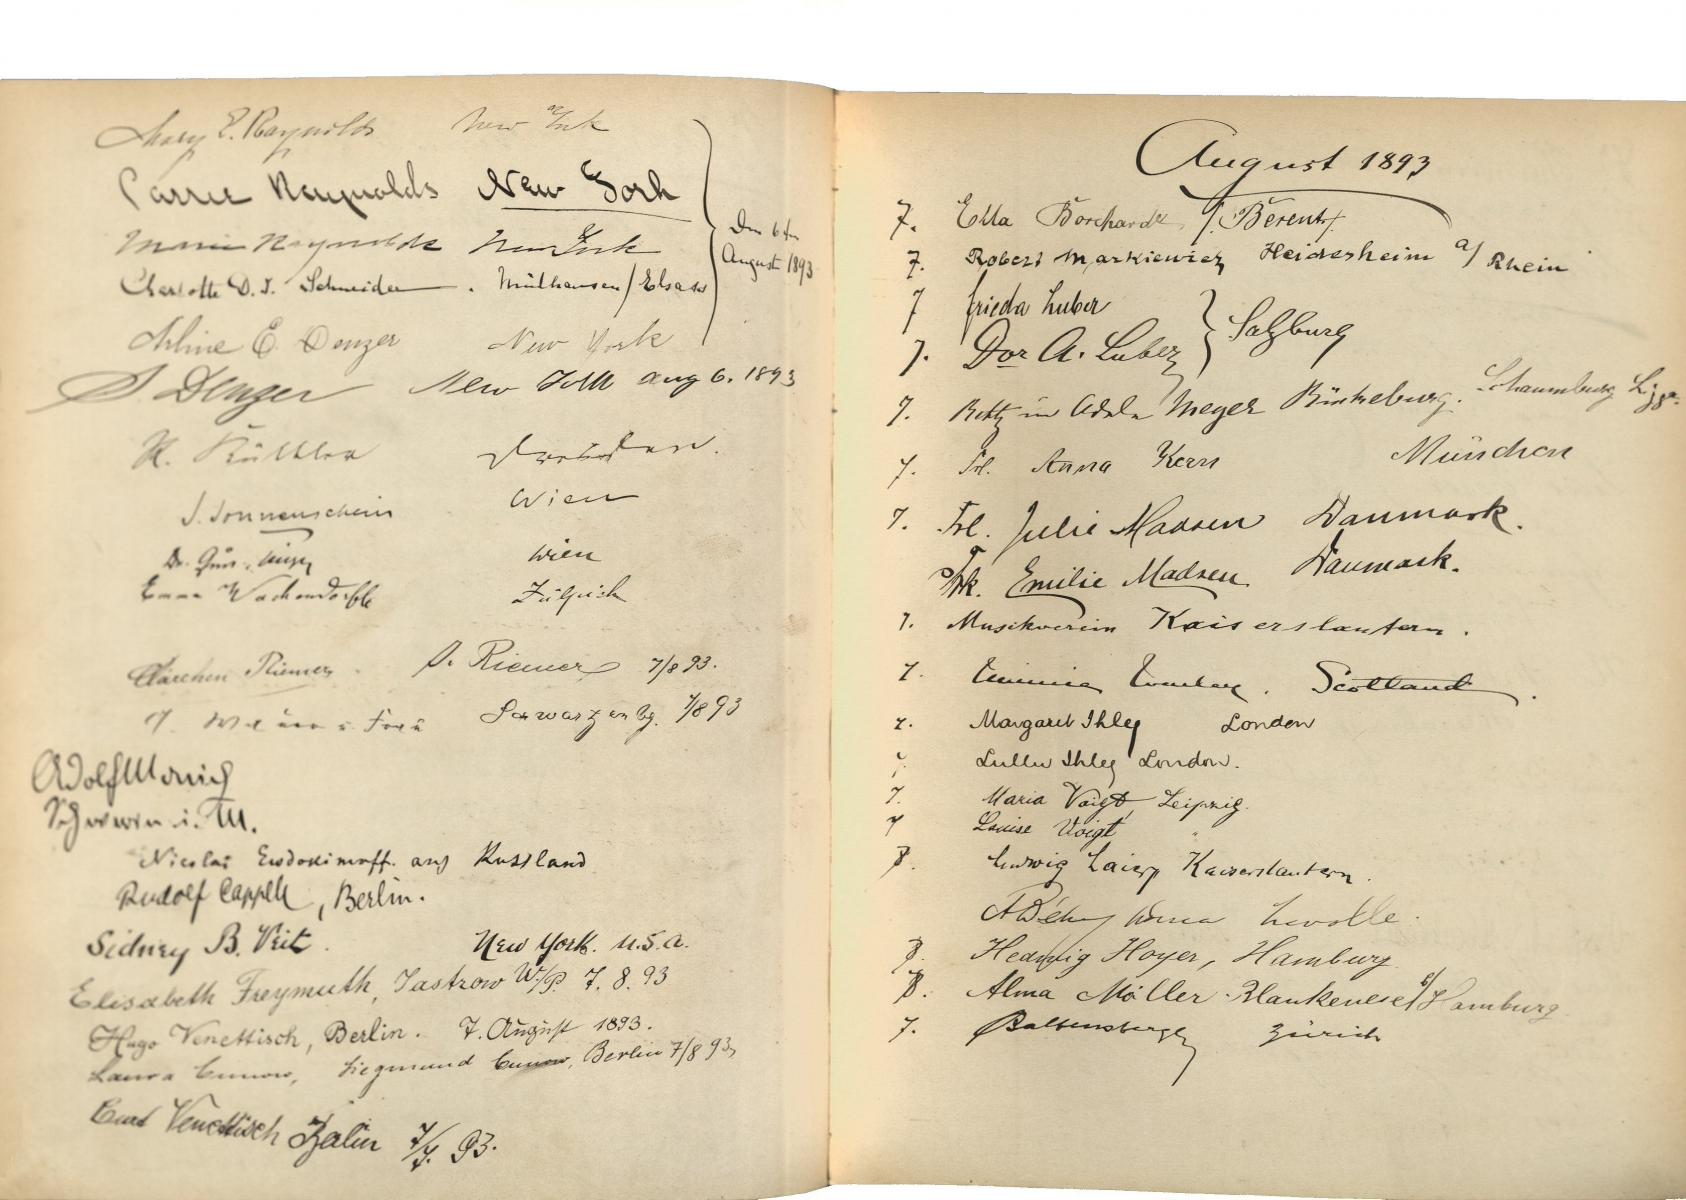 Mary E. Raynolds New York
Carrie Raynolds New York
Marie Raynolds New York
Charlotte D. J. Schneider. Mülhausen/Elsass
Den 6ten
August 1893
Arline E. Denzer New York
S Denzer New York Aug 6. 1893
H. Dresden.
J. Sonnenschein Wien
Dr. Wien
Emma Wachendorff Zülpich
Clärchen Riemer. Riemer 7/8 93.
u. Frau Schwarzenbg. 7/8 93
Adolf
Schwerin i. M.
Nicolai Ewdokimoff. aus Russland
Rudolf Cappelle, Berlin.
Sidney B. Veit. New York. U.S.A.
Elisabeth Freymuth, Jastrow W/P. 7. 8. 93
Hugo Venettisch, Berlin. 7. August 1893.
Laura Cunow, Siegmund Cunow, Berlin 7/8 93,
Curt Venettisch Berlin 7/8. 93.
August 1893
7. Ella Borchardt /Berent/.
7. Robert Markiewicz Heidesheim a/Rhein
7 Frieda Luber
7. Dor A. Luber Salzburg
7. Adele Meyer Bückeburg. Schaumburg Lippe.
7. Frl. Anna Kern München
7. Frl. Julie Madsen Danmark.
Frk. Emilie Madsen Danmark.
7. Musikverein Kaiserslautern.
7. Scotland.
7. Margaret Ihley London
7. Ihley London.
7. Maria Voigt, Leipzig.
7 Louise Voigt "
8. Ludwig Kaiserslautern.
8. Hedwig Hoyer, Hamburg
8. Alma Möller. Blankenese b/Hamburg
7. Zürich